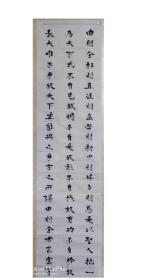 曲則全枉則直窪則盈敝則新少則得多則惑是以聖人抱一
為天下式不自見故明不自是故彰不自伐故有功不自矜故
長夫唯不爭故天下莫能與之爭古之所謂曲則全